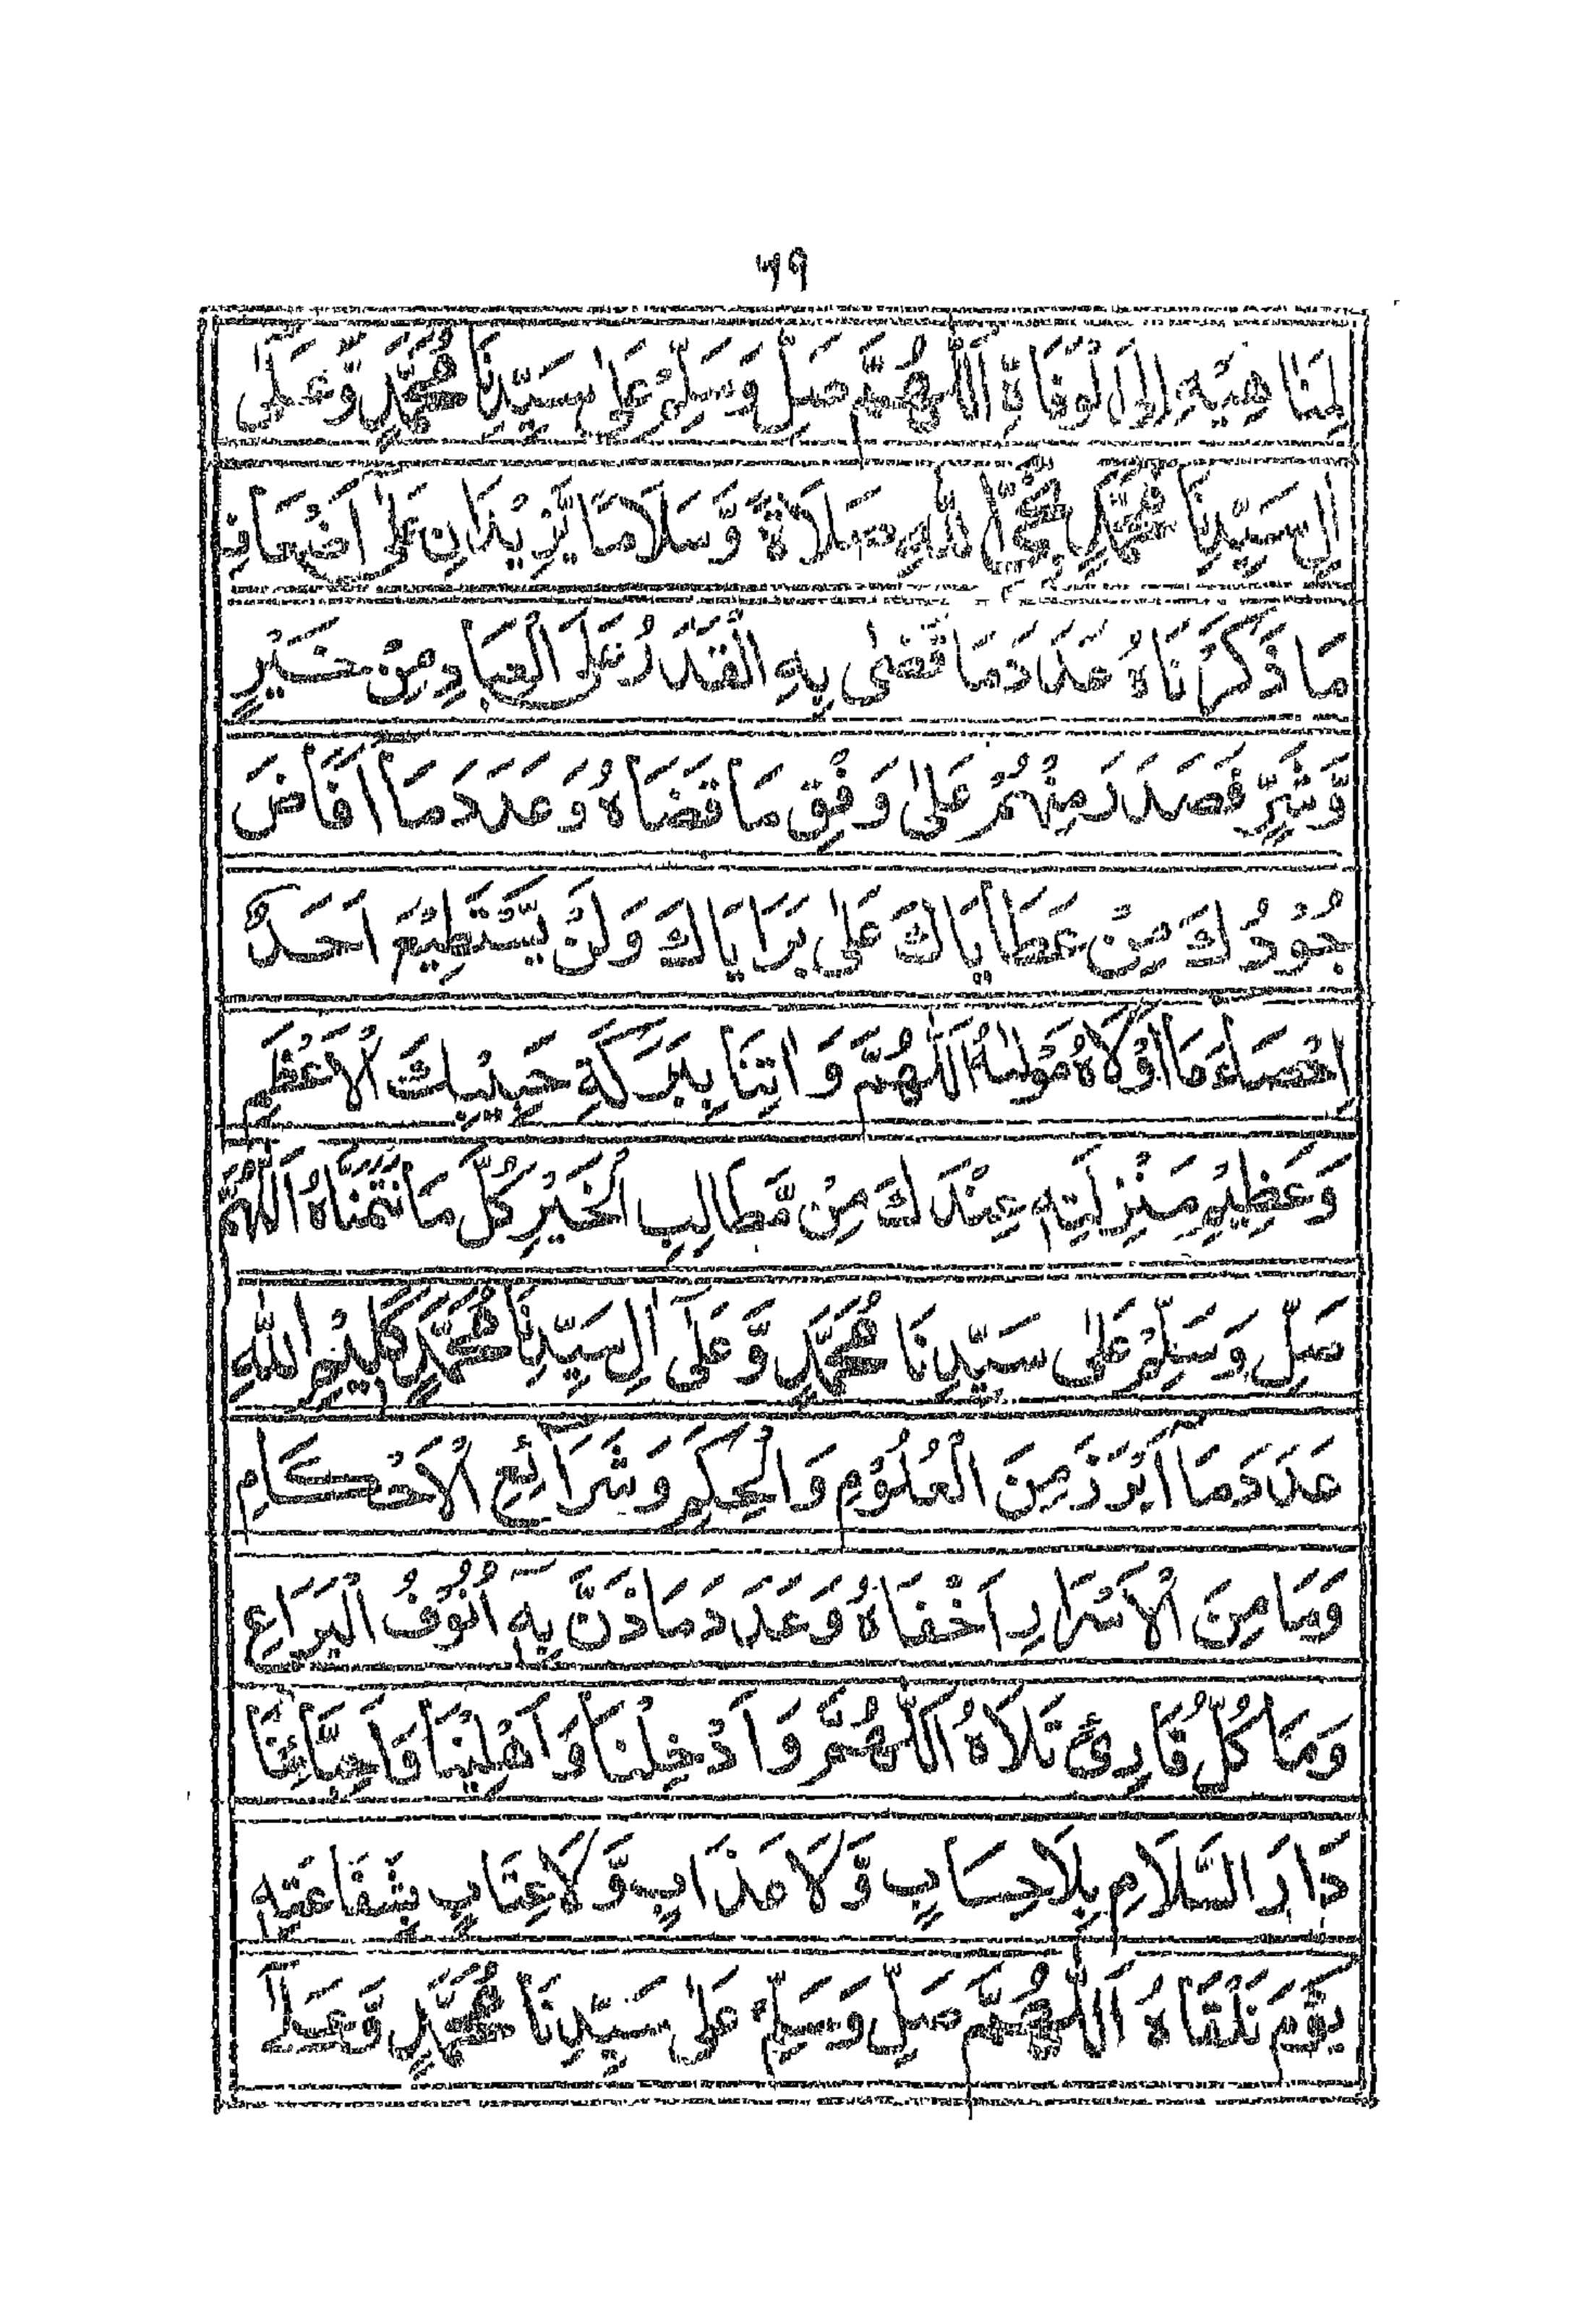 ۶۹
لِمَنَا هِيْهِ اِلَى الْوَفَاةِ اَللّٰهُمَّ صَلِّ وَسَلِّمْ عَلٰى سَيِّدِنَا مُحَمَّدٍ وَّعَلٰٓى
اٰلِ سَيِّدِنَا مُحَمَّدٍ نَجِيِّ اللّٰهِ صَلَاةً وَّسَلَامًا يَّزِيْدَانِ عَلٰٓى اَضْعَافِ
مَا ذَكَرْنَاهُ عَدَدَ مَا قَضٰى بِهِ الْقَدَرُ عَلَى الْعِبَادِ مِنْ خَيْرٍ
وَّشَرٍّ فَصَدَدَ مِنْهُمْ عَلٰى وَفْقِ مَا قَضَاهُ وَعَدَدَ مَا اَفَاضَ
جُوْدُكَ مِنْ عَطَايَاكَ عَلٰى بَرَايَاكَ وَلَنْ يَّسْتَطِيْعَ اَحَدٌ
اِحْصَاءَ مَا اَوْلَاهُ مَوْلَاهُ اَللّٰهُمَّ وَاٰتِنَا بِبَرَكَةِ حَبِيْبِكَ الْاَعْظَمِ
وَعَظِيْمِ مَنْزِلَتِهٖ عِنْدَكَ مِنْ مَّطَالِبِ الْخَيْرِ كُلَّ مَا نَتَمَنَّاهُ اَللّٰهُمَّ
صَلِّ وَسَلِّمْ عَلٰى سَيِّدِنَا مُحَمَّدٍ وَّعَلٰٓى اٰلِ سَيِّدِنَا مُحَمَّدٍ كَلِيْمِ اللّٰهِ
عَدَدَ مَا اَبْرَزَ مِنَ الْعُلُوْمِ وَالْحِكَمِ وَشَرَائِعِ الْاَحْكَامِ
وَمَا مِنَ الْاَسْرَارِ اَخْفَاهُ وَعَدَدَ مَا ذَنَّ بِهٖٓ اُنُوْفُ الْيَرَاعِ
وَمَا كُلُّ قَارِئٍ تَلَاهُ اَللّٰهُمَّ وَاَدْخِلْنَا وَاَهْلِيْنَا وَاَحِبَّائَنَا
دَارَ السَّلَامِ بِلَا حِسَابٍ وَّلَا عَذَابٍ وَّلَا عِتَابٍ بِشَفَاعَتِهٖ
يَوْمَ نَلْقَاهُ اَللّٰهُمَّ صَلِّ وَسَلِّمْ عَلٰى سَيِّدِنَا مُحَمَّدٍ وَّعَلٰٓى